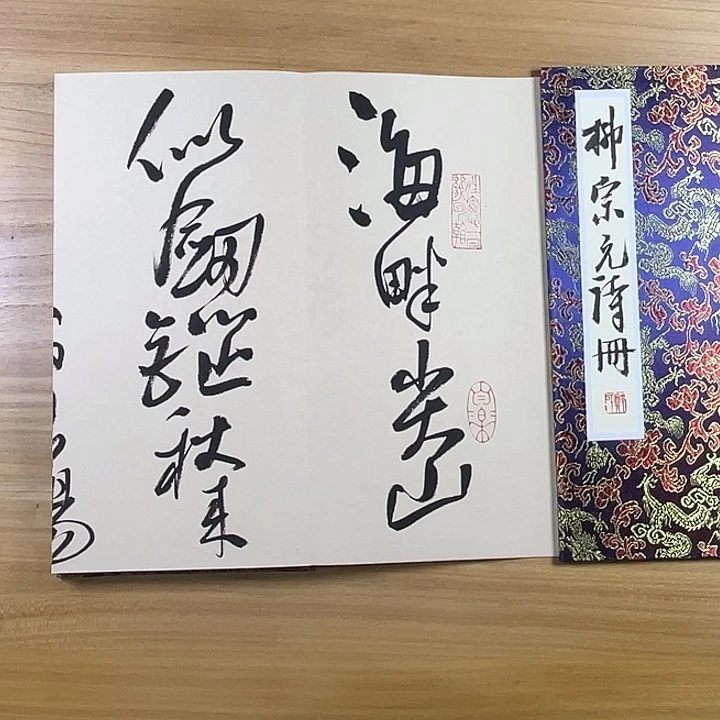 柳宗元詩冊
海畔尖山
似劍鋩秋来